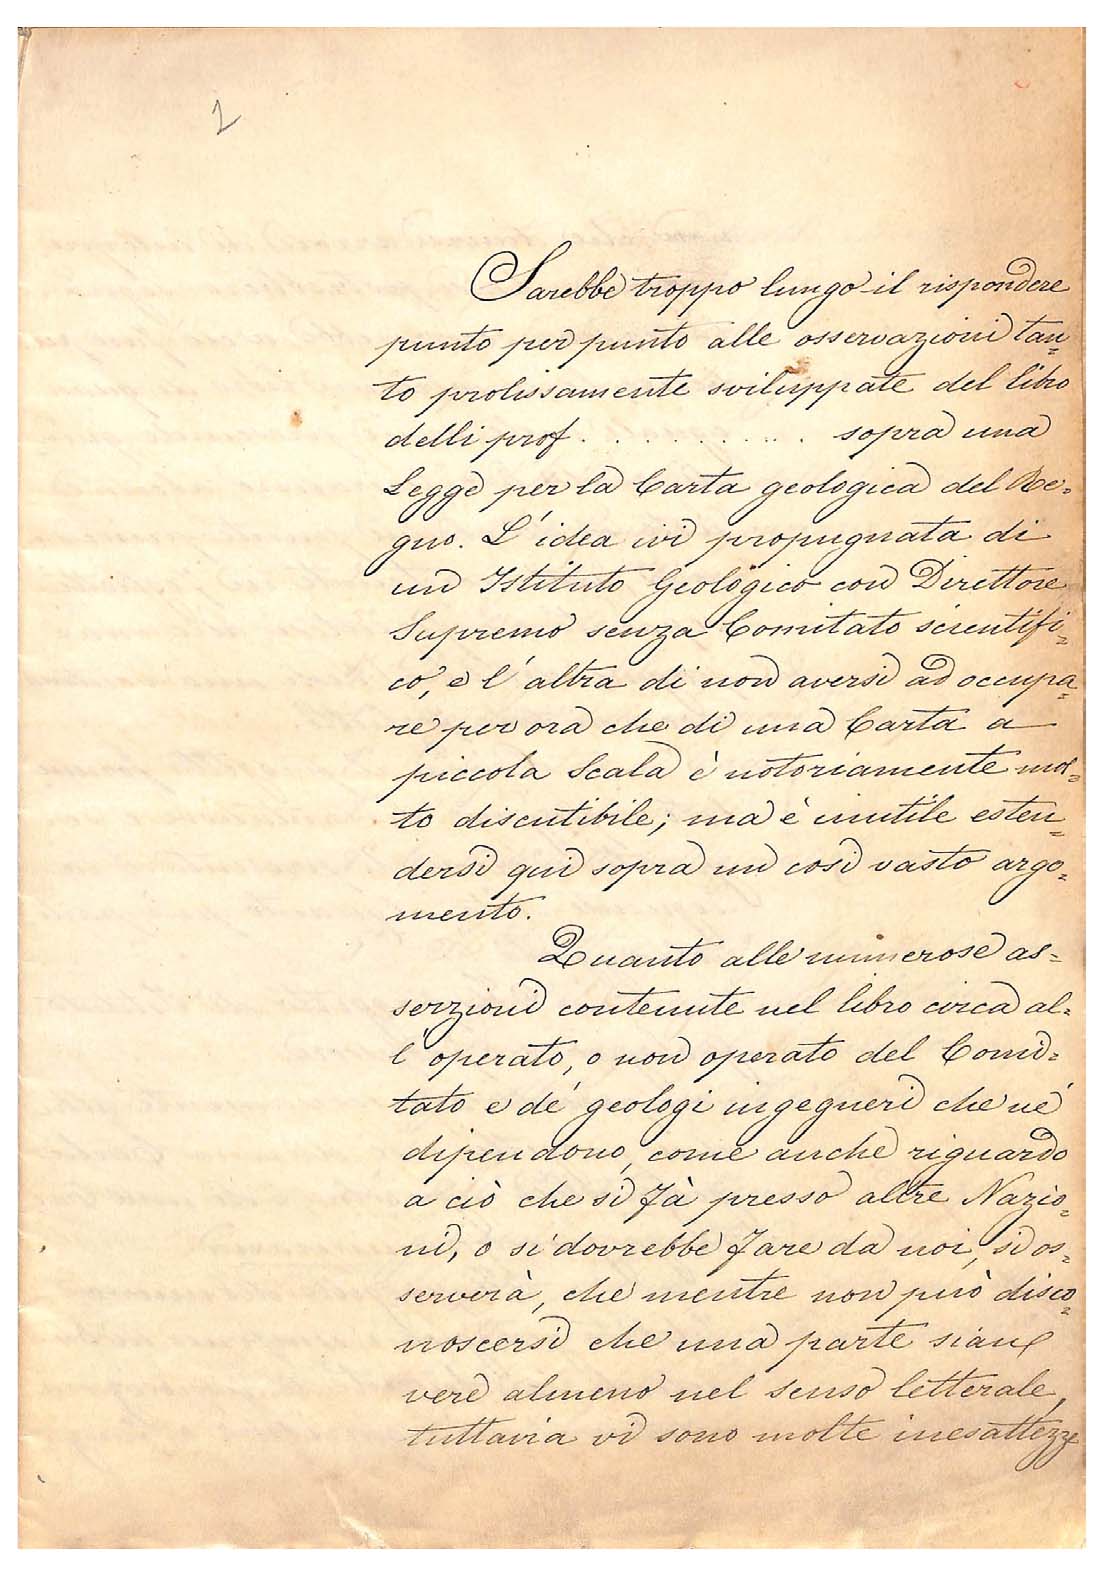 2
Sarebbe troppo lungo il rispondere
punto per punto alle osservazioni tan=
to prolissamente sviluppate del libro
delli prof. . . . . . . . . . . sopra una
Legge per la Carta geologica del Re=
gno. L'idea ivi propugnata di
un Istituto Geologico con Direttore
Supremo senza Comitato scientifi=
co, e l'altra di non aversi ad occupa=
re per ora che di una Carta a
piccola Scala è notoriamente mol=
to discutibile; ma è inutile esten=
dersi qui sopra un così vasto argo=
mento.
Quanto alle numerose as=
serzioni contenute nel libro circa al=
l'operato, o non operato del Comi=
tato e de' geologi ingegneri che ne
dipendono, come anche riguardo
a ciò che si fà presso altre Nazio=
ni, o si dovrebbe fare da noi, si os=
serverà, che mentre non può disco=
noscersi che una parte siano
vere almeno nel senso letterale,
tuttavia vi sono molte inesattezze